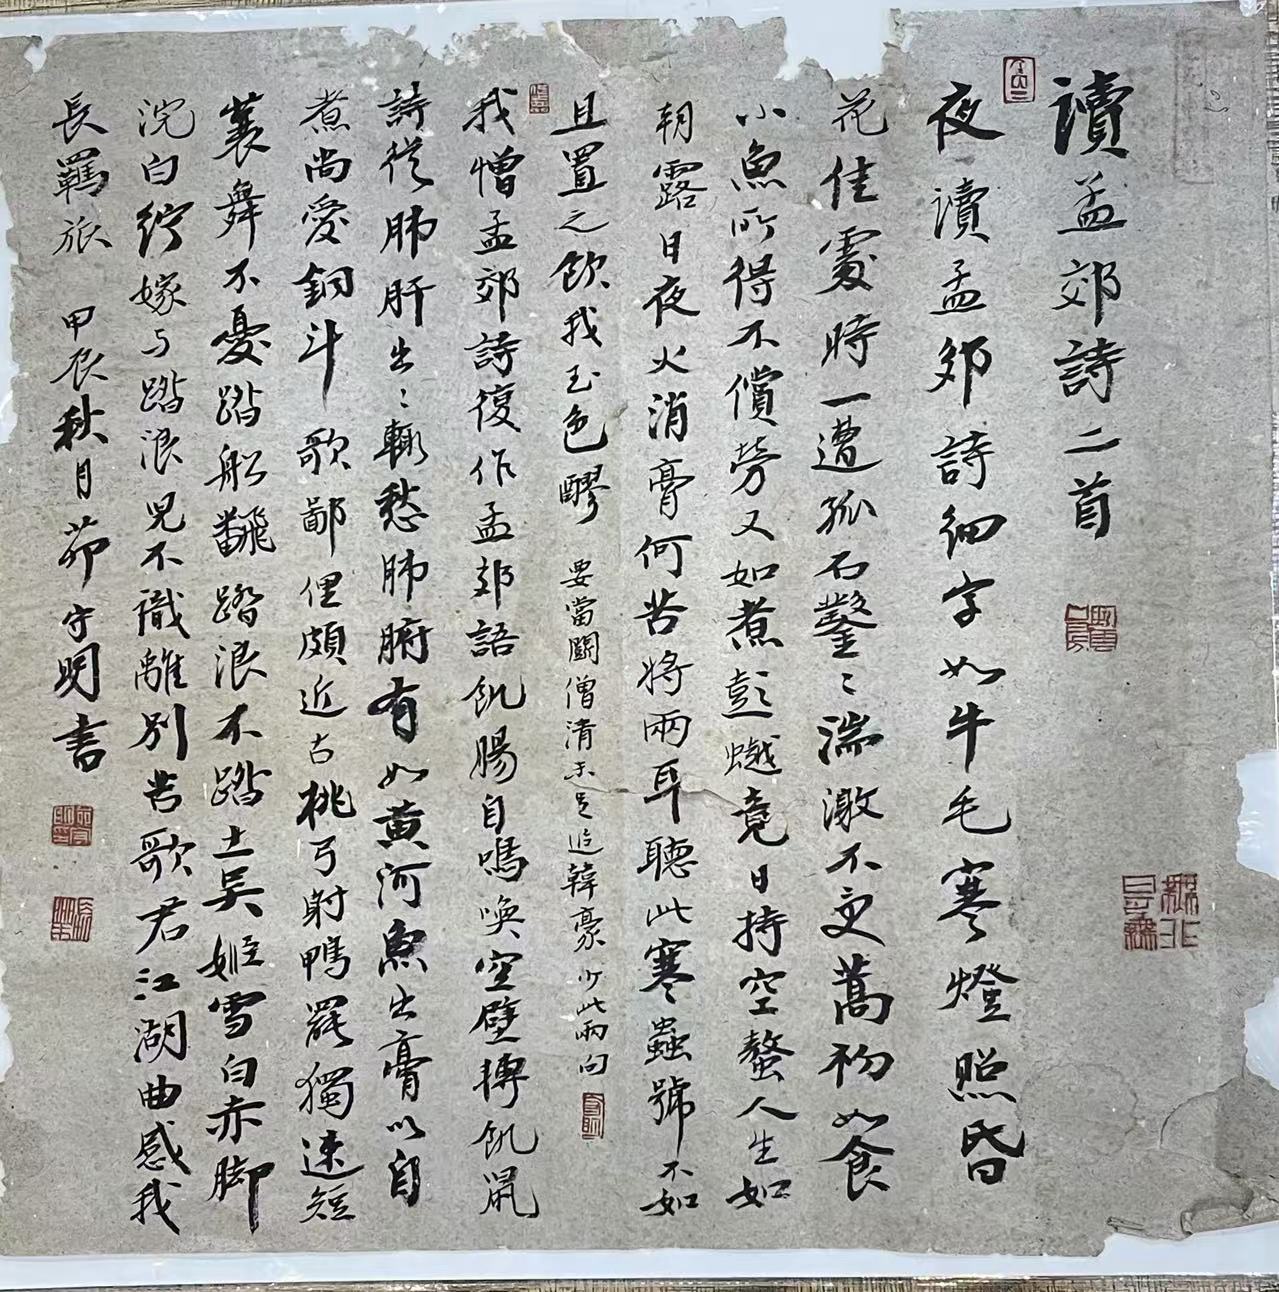 讀孟郊詩二首
夜讀孟郊詩細字如牛毛寒燈照昏
花佳處時一遭孤石鑿〻湍激不受蒿初如食
小魚所得不償勞又如煮彭𧑅竟日持空螯人生如
朝露日夜火消膏何苦將兩耳聽此寒蟲號不如
且置之飲我玉色醪 要當鬪僧清未足追韓豪 少此兩句
我憎孟郊詩復作孟郊語飢腸自鳴喚空壁轉飢鼠
詩從肺肝出〻輒愁肺腑有如黃河魚出膏以自
煮尚愛銅斗歌鄙俚頗近古桃弓射鴨罷獨速短
蓑舞不憂踏船飜踏浪不踏土吳姬雪白赤腳
浣白紵嫁与踏浪兒不識離別苦歌君江湖曲感我
長羈旅 甲辰秋月 守明書